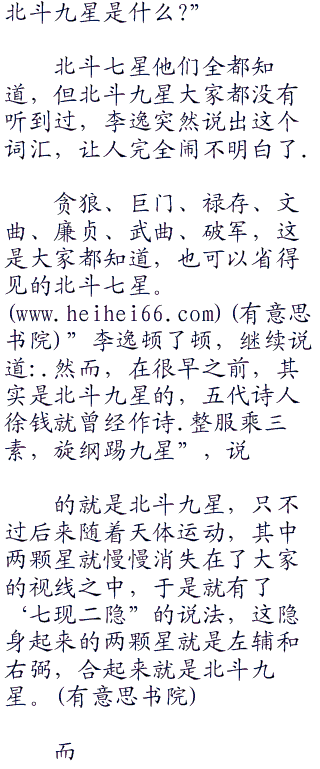 北斗九星是什么?”
北斗七星他们全都知
道，但北斗九星大家都没有
听到过，李逸突然说出这个
词汇，让人完全闹不明白了.
贪狼、巨门、禄存、文
曲、廉贞、武曲、破军，这
是大家都知道，也可以省得
见的北斗七星。
(www.heihei66.com)(有意思
书院)”李逸顿了顿，继续说
道:.然而，在很早之前，其
实是北斗九星的，五代诗人
徐钱就曾经作诗.整服乘三
素，旋纲踢九星”，说
的就是北斗九星，只不
过后来随着天体运动，其中
两颗星就慢慢消失在了大家
的视线之中，于是就有了
‘七现二隐”的说法，这隐
身起来的两颗星就是左辅和
右弼，合起来就是北斗九
星。(有意思书院)
而